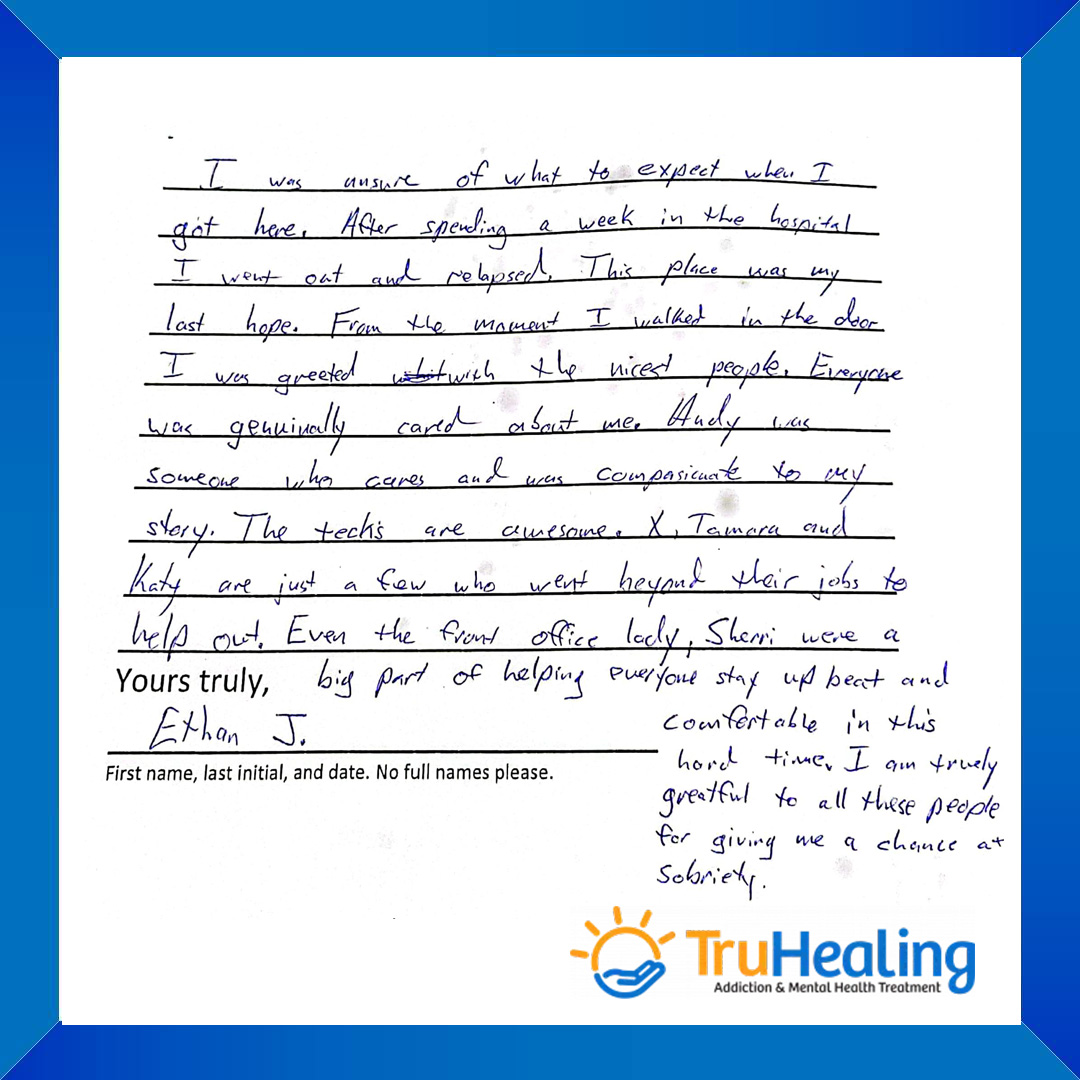 I was unsure of what to expect when I
got here. After spending a week in the hospital
I went out and relapsed. This place was my
last hope. From the moment I walked in the door
I was greeted with the nicest people. Everyone
was genuinally cared about me. Andy was
someone who cares and was compasionate to my
story. The tech's are awesome. X, Tamara and
Katy are just a few who went beyond their jobs to
help out. Even the front office lady, Sherri were a
big part of helping everyone stay up beat and
comfortable in this
hard time. I am truely
greatful to all these people
for giving me a chance at
Sobriety.
Yours truly,
Ethan J.
First name, last initial, and date. No full names please.
TruHealing
Addiction & Mental Health Treatment